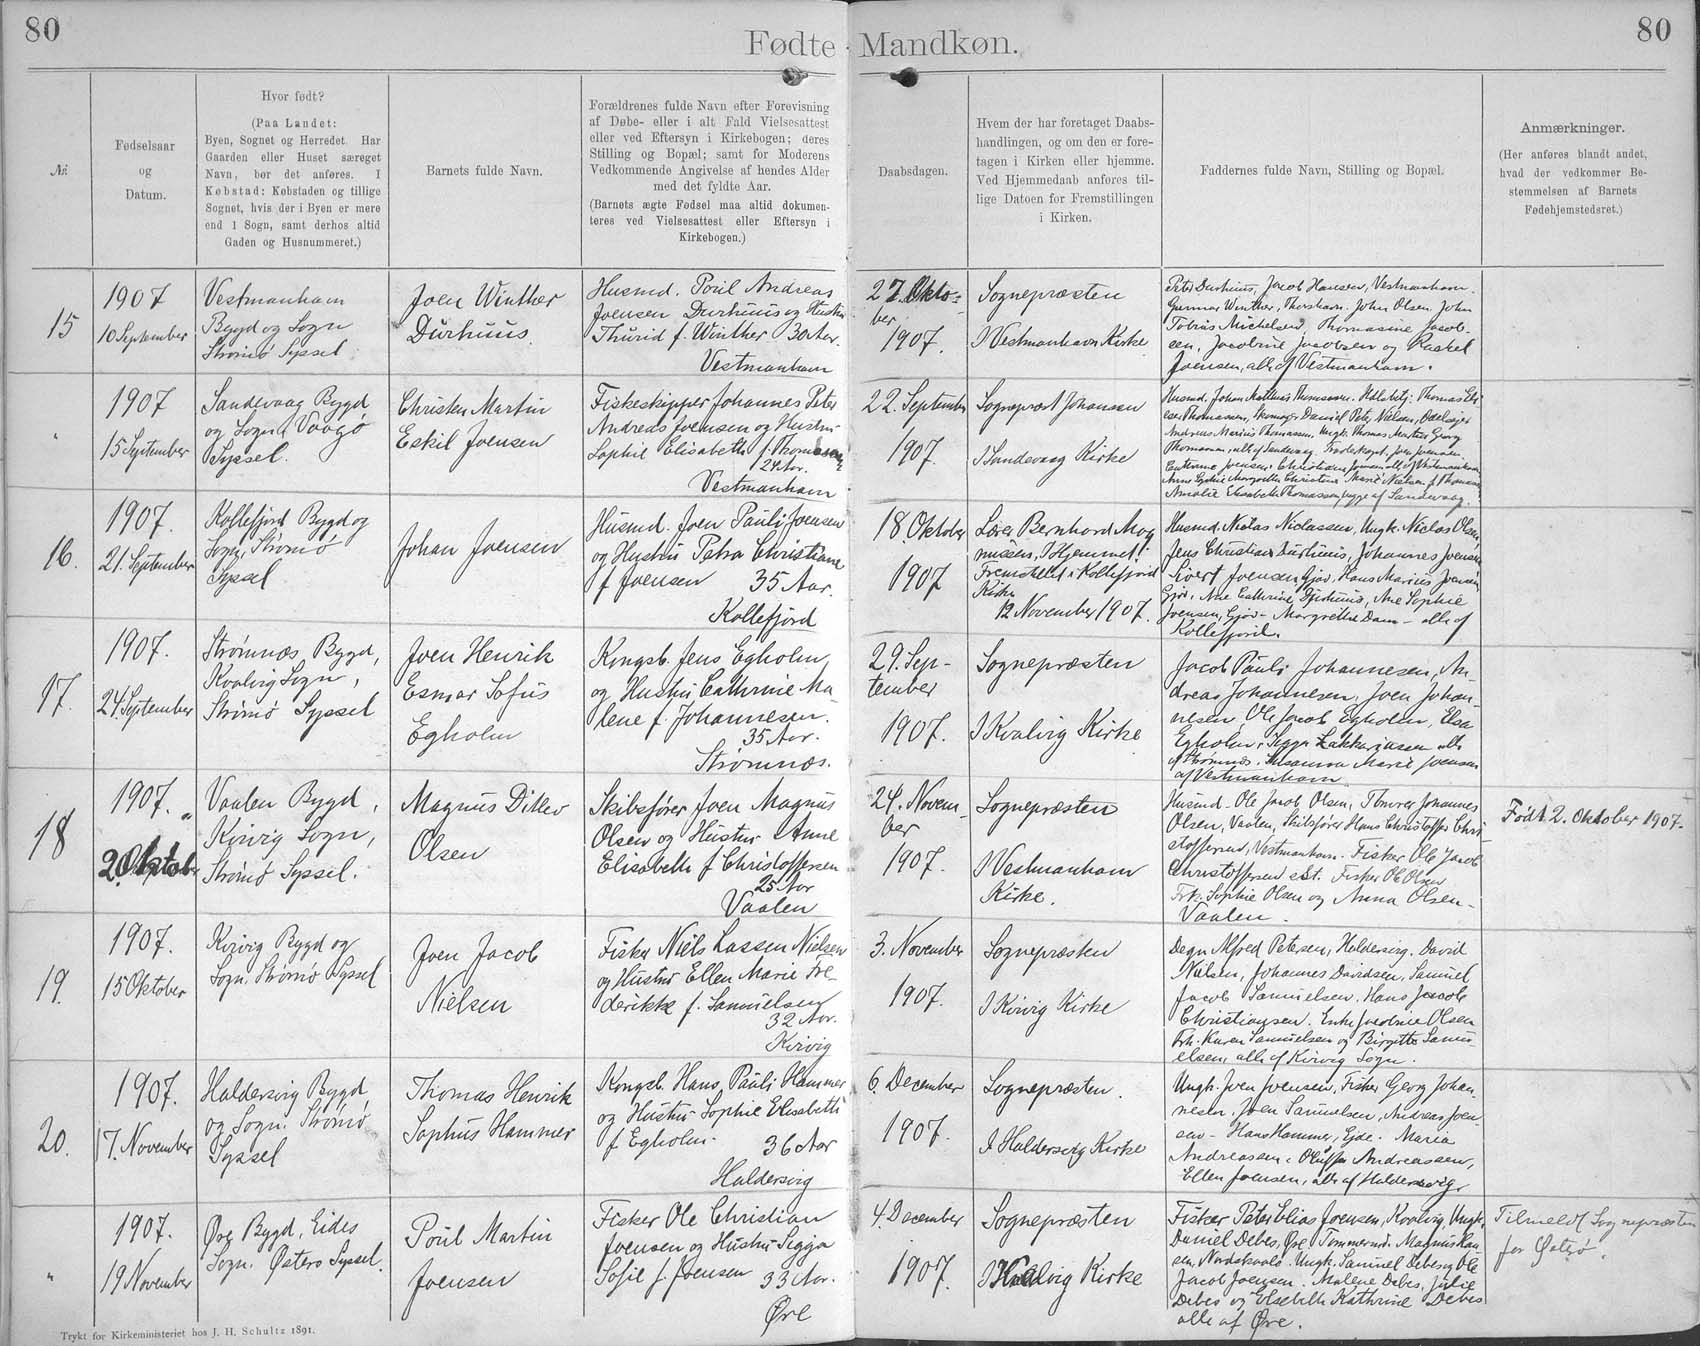 80
Fødte Mandkøn.
80
№
Fødselsaar
og
Datum.
Hvor født?
(Paa Landet:
Byen, Sognet og Herredet. Har
Gaarden eller Huset særeget
Navn, bør det anføres. I
Købstad: Købstaden og tillige
Sognet, hvis der i Byen er mere
end 1 Sogn, samt derhos altid
Gaden og Husnummeret.)
Barnets fulde Navn.
Forældrenes fulde Navn efter Forevisning
af Døbe- eller i alt Fald Vielsesattest
eller ved Eftersyn i Kirkebogen; deres
Stilling og Bopæl; samt for Moderens
Vedkommende Angivelse af hendes Alder
med det fyldte Aar.
(Barnets ægte Fødsel maa altid dokumen-
teres ved Vielsesattest eller Eftersyn i
Kirkebogen.)
Daabsdagen.
Hvem der har foretaget Daabs-
handlingen, og om den er fore-
tagen i Kirken eller hjemme.
Ved Hjemmedaab anføres til-
lige Datoen for Fremstillingen
i Kirken.
Faddernes fulde Navn, Stilling og Bopæl.
Anmærkninger.
(Her anføres blandt andet,
hvad der vedkommer Be-
stemmelsen af Barnets
Fødehjemstedsret.)
15
1907
10 September
Vestmanhavn
Bygd og Sogn
Strømø Syssel
Joen Winther
Durhuus
Husmd. Poul Andreas
Joensen Durhuus og Hustru
Thurid f. Winther 30 Aar.
Vestmanhavn
27. Okto-
ber
1907.
Sognepræsten
I Vestmanhavn Kirke
Peter Durhuus, Jacob Hansen, Vestmanhavn.
Gunnar Winther, Thorshavn. John Olsen, John
Tobias Michelsen, Thomasine Jacob-
sen, Jacobine Jacobsen og Rachel
Joensen, alle af Vestmanhavn.
"
1907
15 September
Sandevaag Bygd
og Sogn, Vaagø
Syssel.
Christen Martin
Eskil Joensen
Fiskeskipper Johannes Peter
Andreas Joensen og Hustru
Sophie Elisabeth f. Thomassen
24 Aar.
Vestmanhavn
22. September
1907.
Sognepræst Johansen
I Sandevaag Kirke
Husmd. Johan Mathias Thomassen.
Thomassen, Daniel Peter Nielsen,
Andreas Marius Thomassen, Ungk. Thomas Martin Georg
Thomassen, alle af Sandevaag. Joen Joensen
Cathrine Joensen, Christiane Joensen alle af Vestmanhavn
Anne Sophie Margrethe Christine Marie Nielsen f. Thomassen
Amalie Elisabeth Thomassen, begge af Sandevaag.
16.
1907.
21. September
Kollefjord Bygd og
Sogn, Strømø
Syssel
Johan Joensen
Husmd. Joen Pauli Joensen
og Hustru Petra Christiane
f. Joensen 35 Aar.
Kollefjord
18. Oktober
1907
Lærer Bernhard Mag
nussen, I Hjemmet!
Fremstillet i Kollefjord
Kirke
12 November 1907.
Husmd. Niclas Niclassen, Ungk. Niclas Olsen,
Jens Christian Durhuus, Johannes Joensen
Sivert Joensen Gjov, Hans Marius Joensen
Gjov, Ane Cathrine Durhuus, Ane Sophie
Joensen, Gjov - Margrethe Dam - alle af
Kollefjord.
17.
1907.
24. September
Strømnæs Bygd,
Kvalvig Sogn,
Strømø Syssel
Joen Henrik
Esmar Sofus
Egholm
Kongsb. Jens Egholm
og Hustru Cathrine Ma
lene f. Johannesen.
35 Aar.
Strømnæs.
29. Sep-
tember
1907.
Sognepræsten
I Kvalvig Kirke
Jacob Pauli Johannesen, An
dreas Johannesen, Joen Johan-
nesen, Ole Jacob Egholm, Elsa
Egholm, Sigga Zakkariassen alle
af Strømnæs. Susanna Marie Joensen
af Vestmanhavn
18
1907. "
2 Oktober
Vaalen Bygd,
Kvivig Sogn,
Strømø Syssel.
Magnus Ditlev
Olsen
Skibsfører Joen Magnus
Olsen og Hustru Anne
Elisabeth f. Christoffersen
25 Aar
Vaalen
24. Novem-
ber
1907.
Sognepræsten
I Vestmanhavn
Kirke.
Husmd. Ole Jacob Olsen, Tømrer Johannes
Olsen, Vaalen, Skibsfører Hans Christoffer Chri
stoffersen, Vestmanhavn. Fisker Ole Jacob
Christoffersen sst. Fisker Ole Olsen
Frk. Sophie Olsen og Anna Olsen -
Vaalen.
Født 2. Oktober 1907.
19.
1907.
15 Oktober
Kvivig Bygd og
Sogn, Strømø Syssel
Joen Jacob
Nielsen
Fisker Niels Lassen Nielsen
og Hustru Ellen Marie Fre-
derikke f. Samuelsen
32 Aar.
Kvivig
3. November
1907.
Sognepræsten
I Kvivig Kirke
Degn Alfred Petersen, Haldersvig. David
Nielsen, Johannes Davidsen, Samuel
Jacob Samuelsen, Hans Jacob
Christiansen. Enke Jacobine Olsen
Frk. Karen Samuelsen og Birgitte Samu-
elsen, alle af Kvivig Sogn.
20.
1907.
17. November
Haldersvig Bygd
og Sogn. Strømø
Syssel
Thomas Henrik
Sophus Hammer
Kongsb. Hans Pauli Hammer
og Hustru Sophie Elisabeth
f. Egholm. 36 Aar
Haldersvig
6. December
1907.
Sognepræsten.
I Haldersvig Kirke
Ungk. Joen Joensen, Fisker Georg Johan-
nesen, Joen Samuelsen, Andreas Joen
sen - Hans Hammer, Ejde. Maria
Andreassen, Andreassen,
Ellen Joensen, alle af Haldersvig
"
1907.
19 November
Øre Bygd, Eides
Sogn. Østerø Syssel.
Poul Martin
Joensen
Fisker Ole Christian
Joensen og Hustru Sigga
Sofie f. Joensen 33 Aar.
Øre
4. December
1907.
Sognepræsten
I Kvalvig Kirke
Fisker Peter Elias Joensen, Kvalvig, Ungk.
Daniel Debes, Øre, Tømmermd. Magnus Han-
sen, Nordskaale. Ungk. Samuel Debes og Ole
Jacob Joensen. Malene Debes, Julie
Debes og Elsebeth Kathrine Debes
alle af Øre.
Tilmeldt Sognepræsten
for Østerø.
Trykt for Kirkeministeriet hos J. H. Schultz 1891.